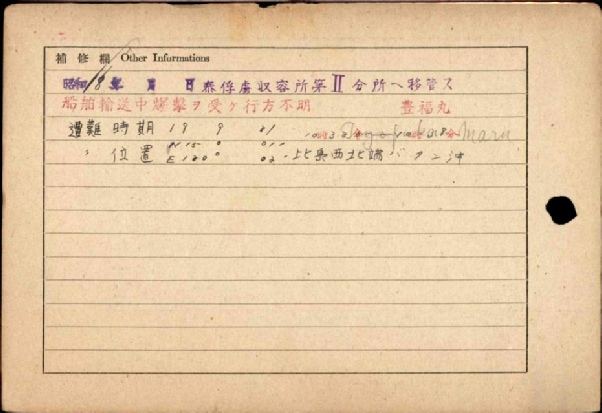 補修欄 Other Informations
昭和18年 月 日 俘虜収容所第II分所へ移管ス
船舶輸送中爆撃ヲ受ケ行方不明 豊福丸
遭難時期 19 9 21 Maru
〃 位置 N 15° E 120° 02 北西北端 沖